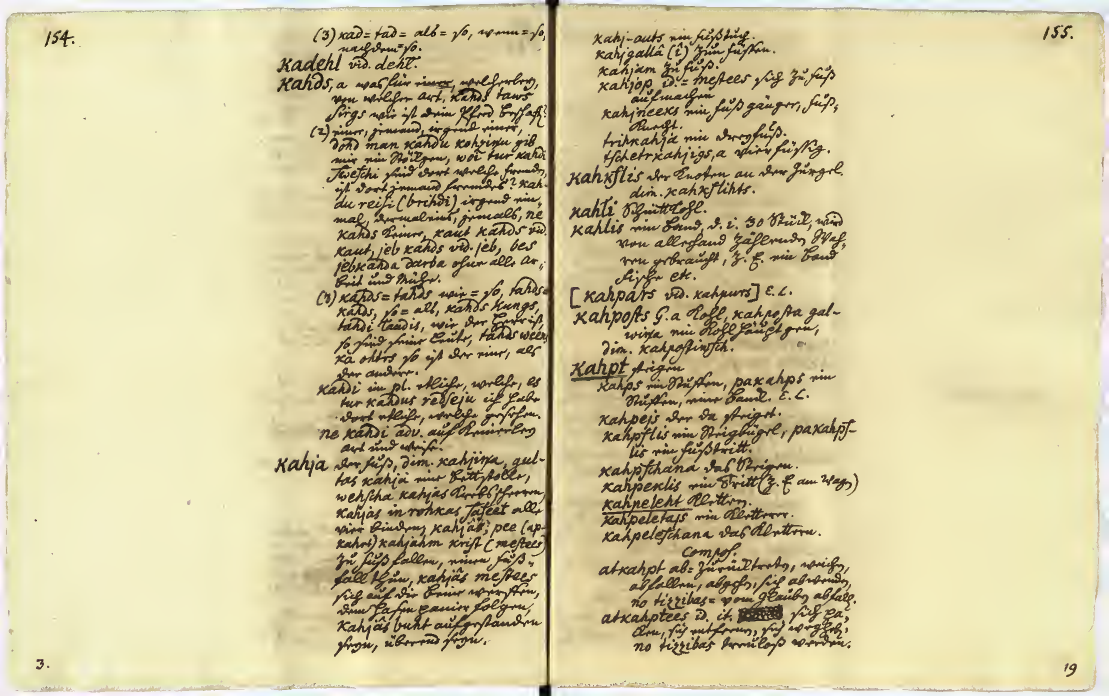 154.
(3) kad = tad = als = so, wenn = so,
nachdem = so.
Kadehl vid. dehl.
Kahds, a was für einer, welcherley,
von welcher art, kahds taws
sirgs wie ist dein Pferd beschaff.
(2) einer, jemand, irgend einer,
dohd man kahdu kohzinu gib
mir ein Stökgen, woi tur kahdi
Sweschi sind dort welche fremde,
ist dort jemand fremdes? kah-
du reisi (brihdi) irgend ein-
mal, dermaleins, jemals, ne
kahds keiner, kaut kahds vid.
kaut, jeb kahds vid. jeb, bes
jebkahda darba ohne alle Ar-
beit und Mühe.
(3) kahds = tahds wie = so, tahds =
kahds, so = als, kahds kungs,
tahdi laudis, wie der Herr ist,
so sind seine Leute, tahds ween
ka ohtrs so ist der eine, als
der andere.
kahdi im pl. etliche, welche, es
tur kahdus redseju ich habe
dort etliche, welche gesehen.
ne kahdi adv. auf keinerley
art und weise.
Kahja der fuß, dim. kahjiņa, gul-
tas kahja eine Bettstolle,
wehscha kahjas Krebsscheeren,
kahjas in rohkas saseet alle
vier binden, kahjâs; pee (ap-
kahrt) kahjahm krist (mestees)
zu fuß fallen, einen fuß-
fall thun, kahjâs mestees
sich auf die Beine werffen,
dem Hasen panier folgen,
kahjâs buht aufgestanden
seyn, überend seyn.
3.
155.
kahj-auts ein fußtuch.
kahjgallâ (î) zun füßen.
kahjam zu fuß.
kahjop id. = mestees sich zu fuß
aufmachen
kahjneeks ein fußgänger, fuß-
Knecht.
trihnkahja ein dreyfuß.
tschetrkahjigs, a vierfüßig.
Kahkslis der Knoten an der Gurgel.
dim. kahkslihts.
Kahli Schnittkohl.
Kahlis ein Band, d. i. 30 Stük, wird
von allerhand zählenden Wah-
ren gebraucht, z. E. ein Band
fische etc.
[Kahpars vid. kahpurs] E. L.
Kahposts G. a Kohl, kahposta gal-
wiņa ein Kohlhäuptgen,
dim. kahpostinsch.
Kahpt steigen
kahps ein Stuffen, pakahps ein
Stuffen, eine Bank. E. L.
kahpejs der da steiget.
kahpslis ein Steigbügel, pakahps-
lis ein fußtritt.
kahpschana das Steigen.
kahpeklis ein Tritt (z. E am Wagn)
kahpeleht Klettern.
kahpeletajs ein Kletterer.
kahpeleschana das Klettern.
Compos.
atkahpt ab = zurüktreten, weichen,
abfallen, abgehn, sich abwenden,
no tizzibas = vom Glauben abfall.
atkahptees id. it. sich pa-
ken, sich entfernen, sich wegheb,
no tizzibas treuloß werden.
19